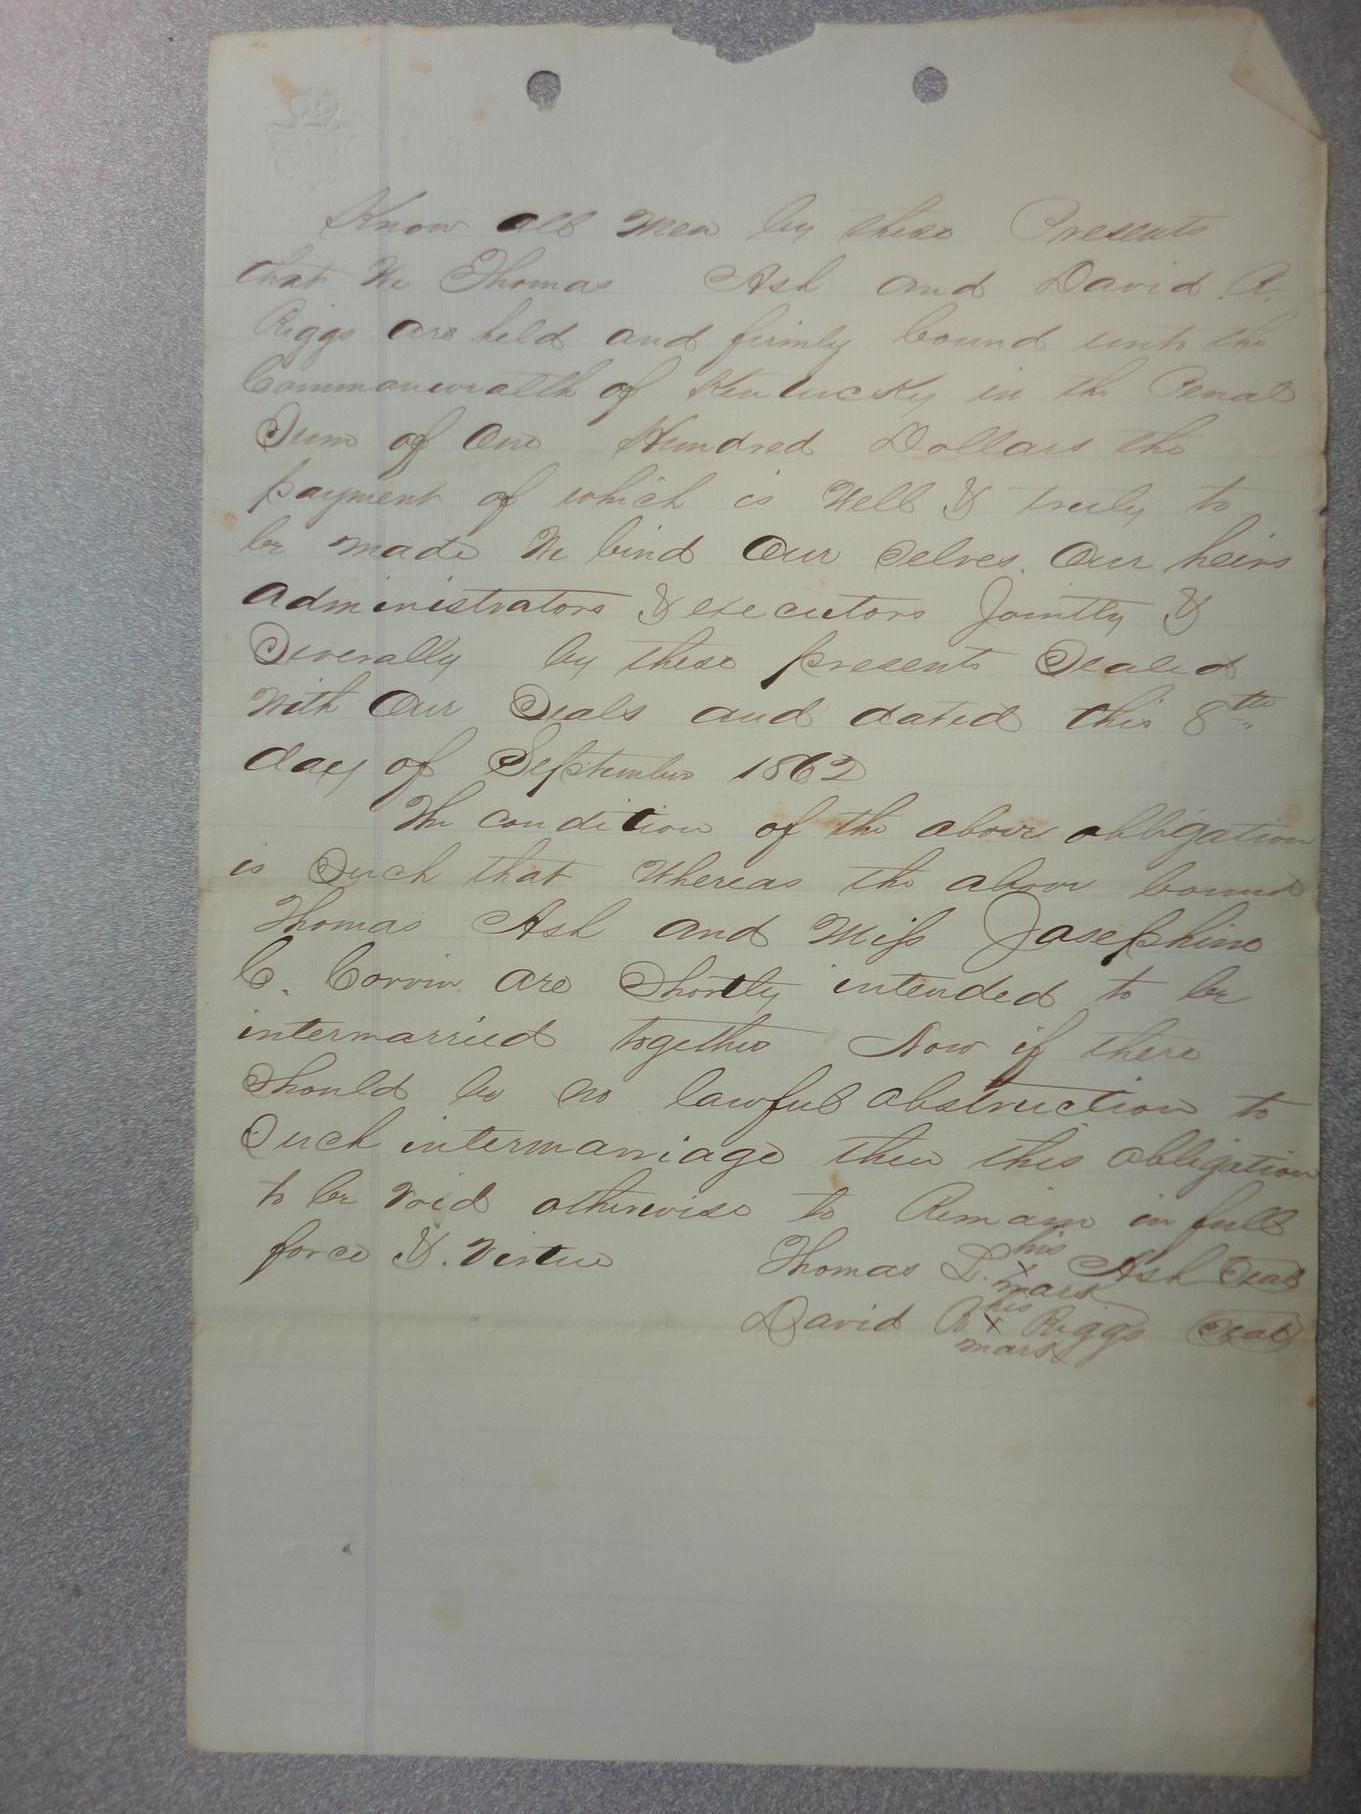 Know all Men by these Presents
that We Thomas Ash and David R.
Riggs are held and firmly bound unto the
Commonwealth of Kentucky in the Penal
Sum of One Hundred Dollars the
payment of which is Well & truly to
be made We bind Our selves. Our heirs
administrators & executors Jointly &
Severally by these presents Sealed
With Our Seals and dated this 8th
day of September 1862
The condition of the above obligation
is Such that Whereas the above bound
Thomas Ash and Miss Josephine
C. Corvin are Shortly intended to be
intermarried together Now if there
Should be no lawful abstruction to
Such intermarriage then this obligation
to be void otherwise to Remain in full
force &. Virtue Thomas L. his x mark Ash Seal
David R his x mark Riggs Seal